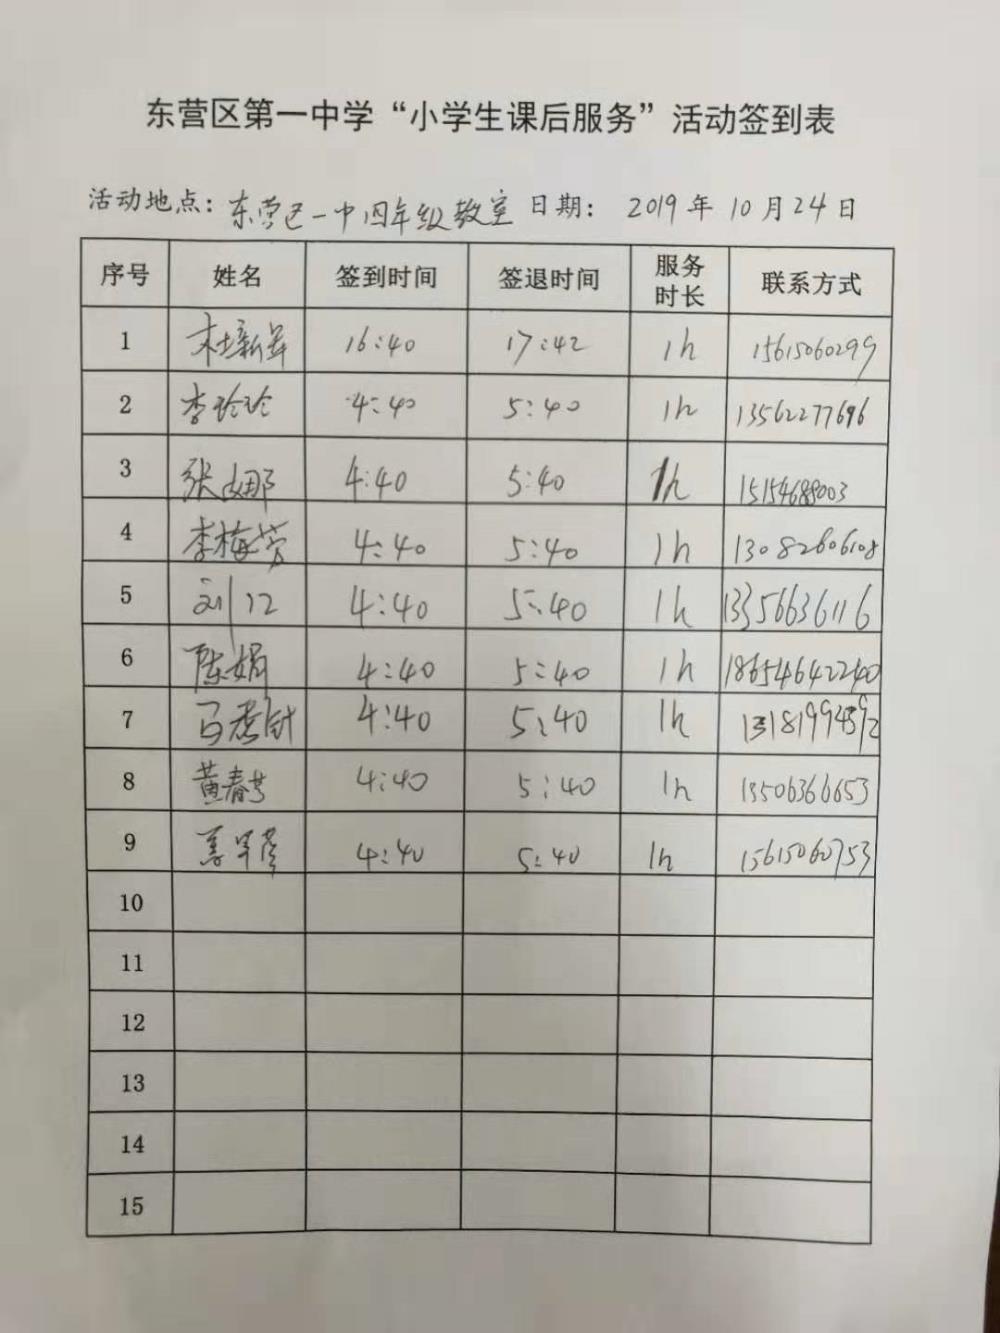 东营区第一中学“小学生课后服务”活动签到表
活动地点：东营区一中四年级教室 日期： 2019 年 10 月 24 日
序号 姓名 签到时间 签退时间 服务时长 联系方式
1 杜新军 16:40 17:42 1h 15615060299
2 李玲玲 4:40 5:40 1h 13562277696
3 张娜 4:40 5:40 1h 15154688003
4 李梅芳 4:40 5:40 1h 13082606108
5 刘江 4:40 5:40 1h 13356636116
6 陈娟 4:40 5:40 1h 18654642240
7 4:40 5:40 1h
8 黄春芳 4:40 5:40 1h 13506366653
9 4:40 5:40 1h 15615060753
10
11
12
13
14
15